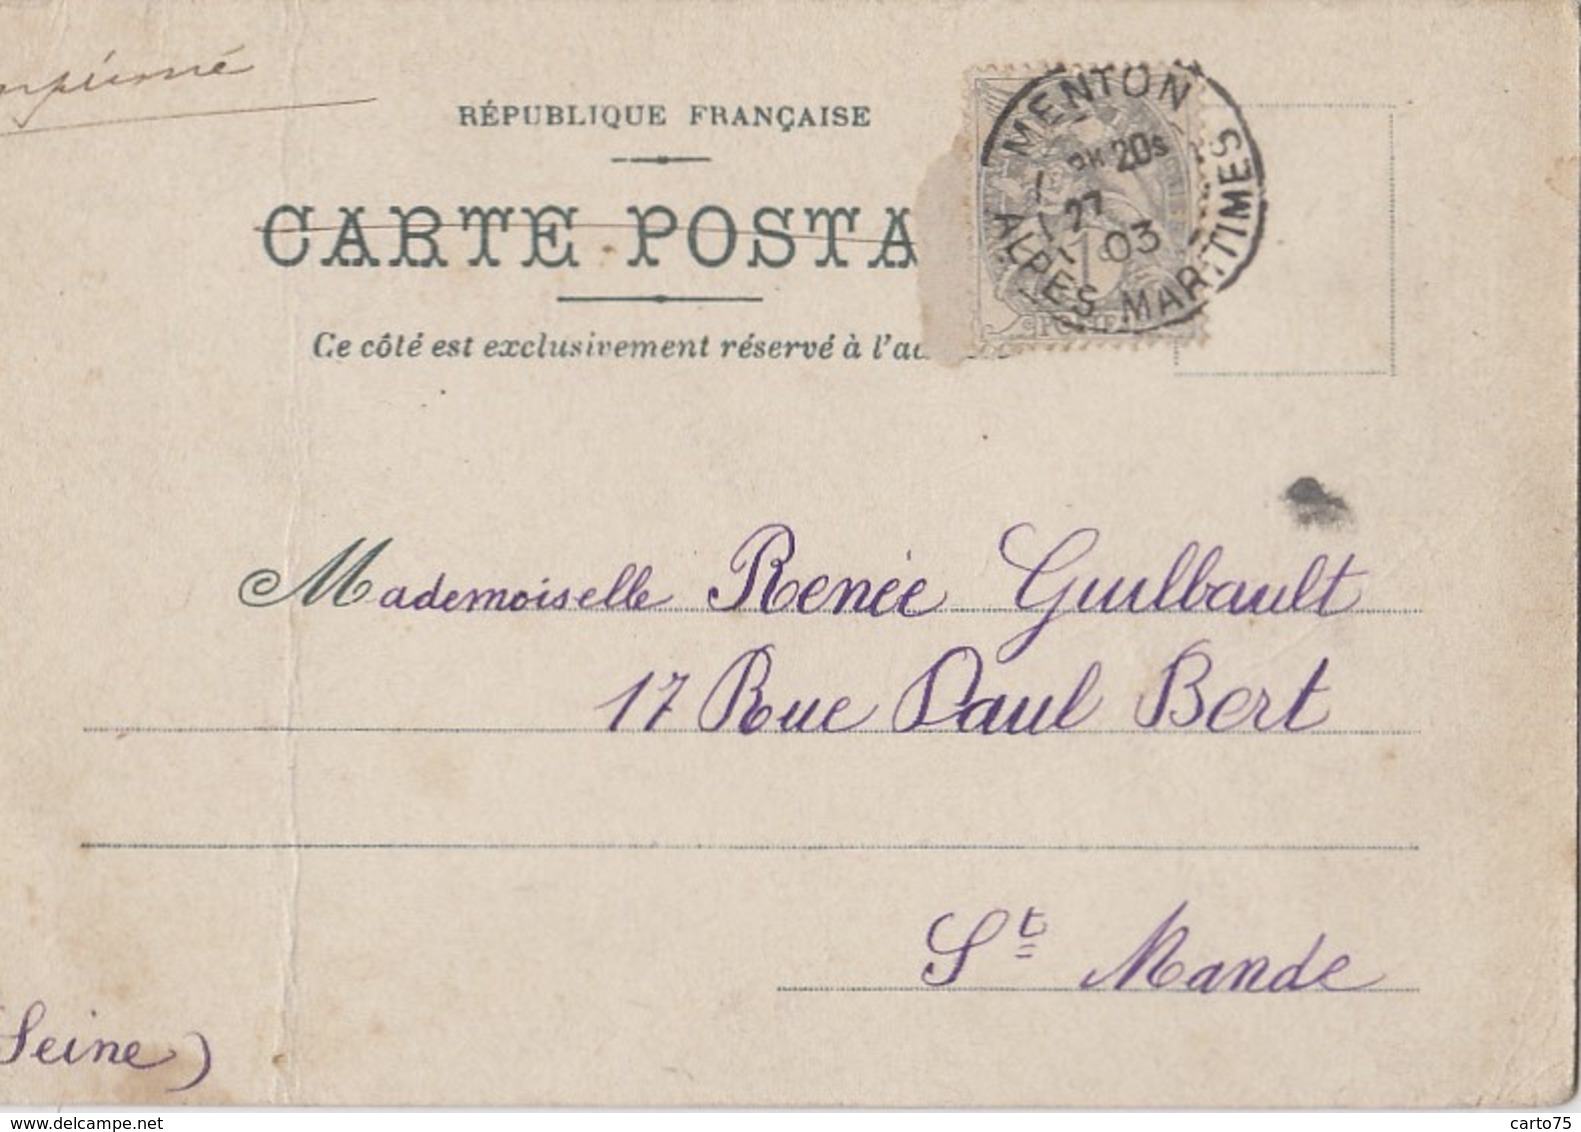 RÉPUBLIQUE FRANÇAISE
CARTE POSTA
Ce côté est exclusivement réservé à l'a
MENTON
20s
27
03
ALPES MARITIMES
1c
POSTE
Mademoiselle Renée Guilbault
17 Rue Paul Bert
St Mande
Seine)
www.delcampe.net
carto75